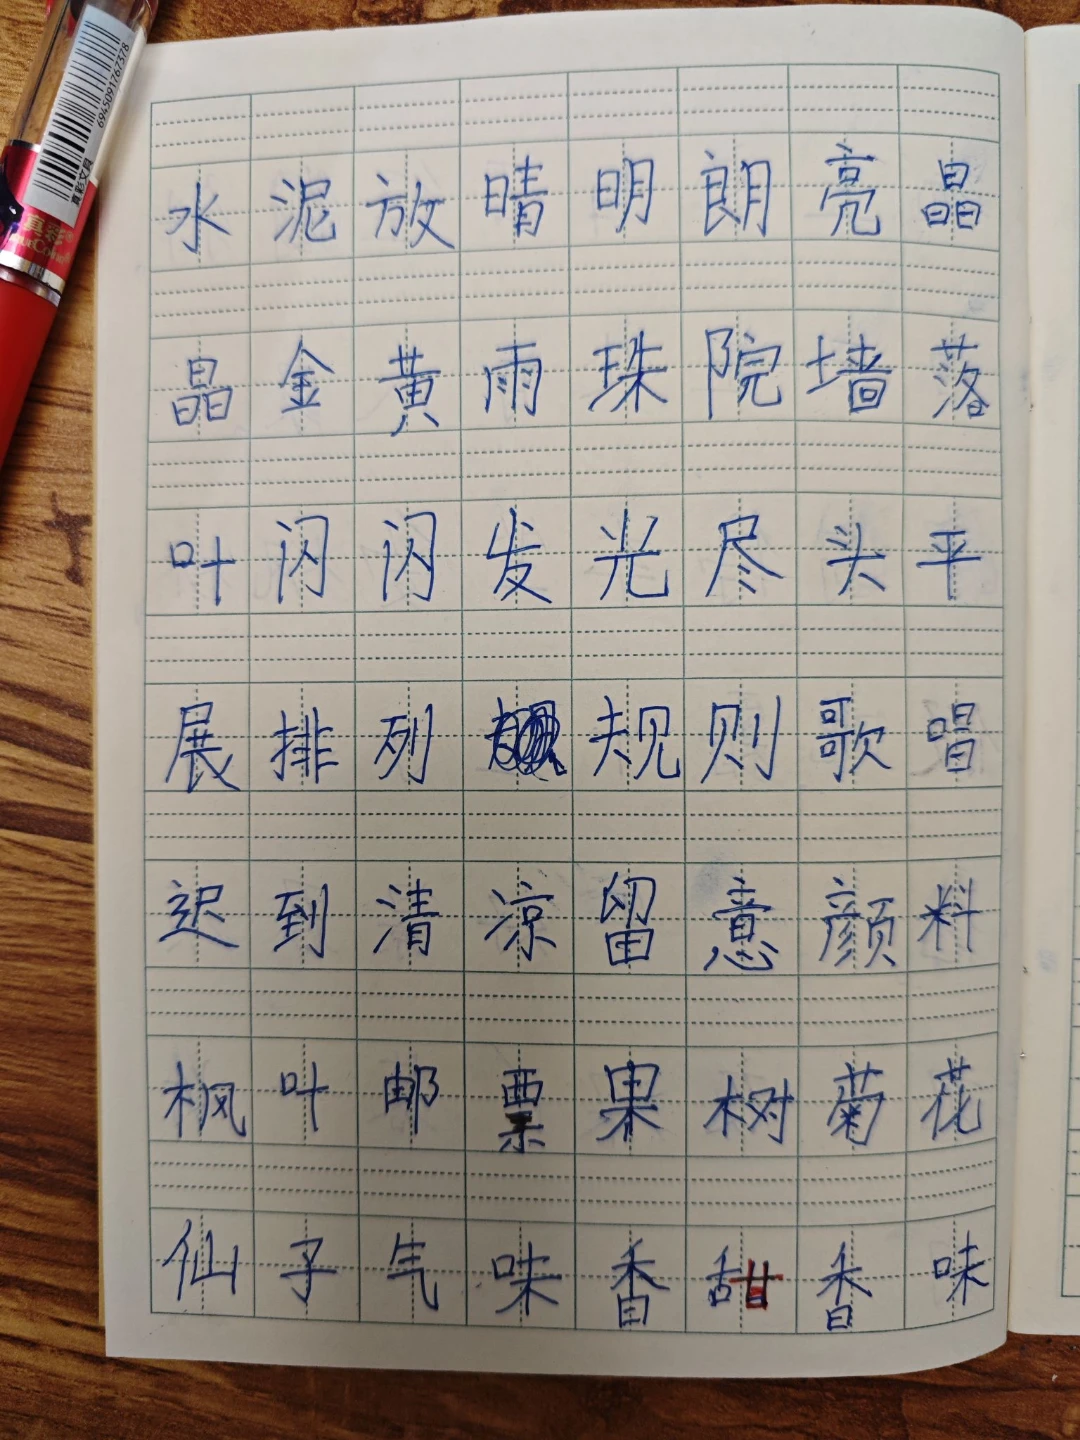 6945091767578
真彩文具
真彩®
水泥放晴明朗亮晶
晶金黄雨珠院墙落
叶闪闪发光尽头平
展排列规则歌唱
迟到清凉留意颜料
枫叶邮票果树菊花
仙子气味香甜香味